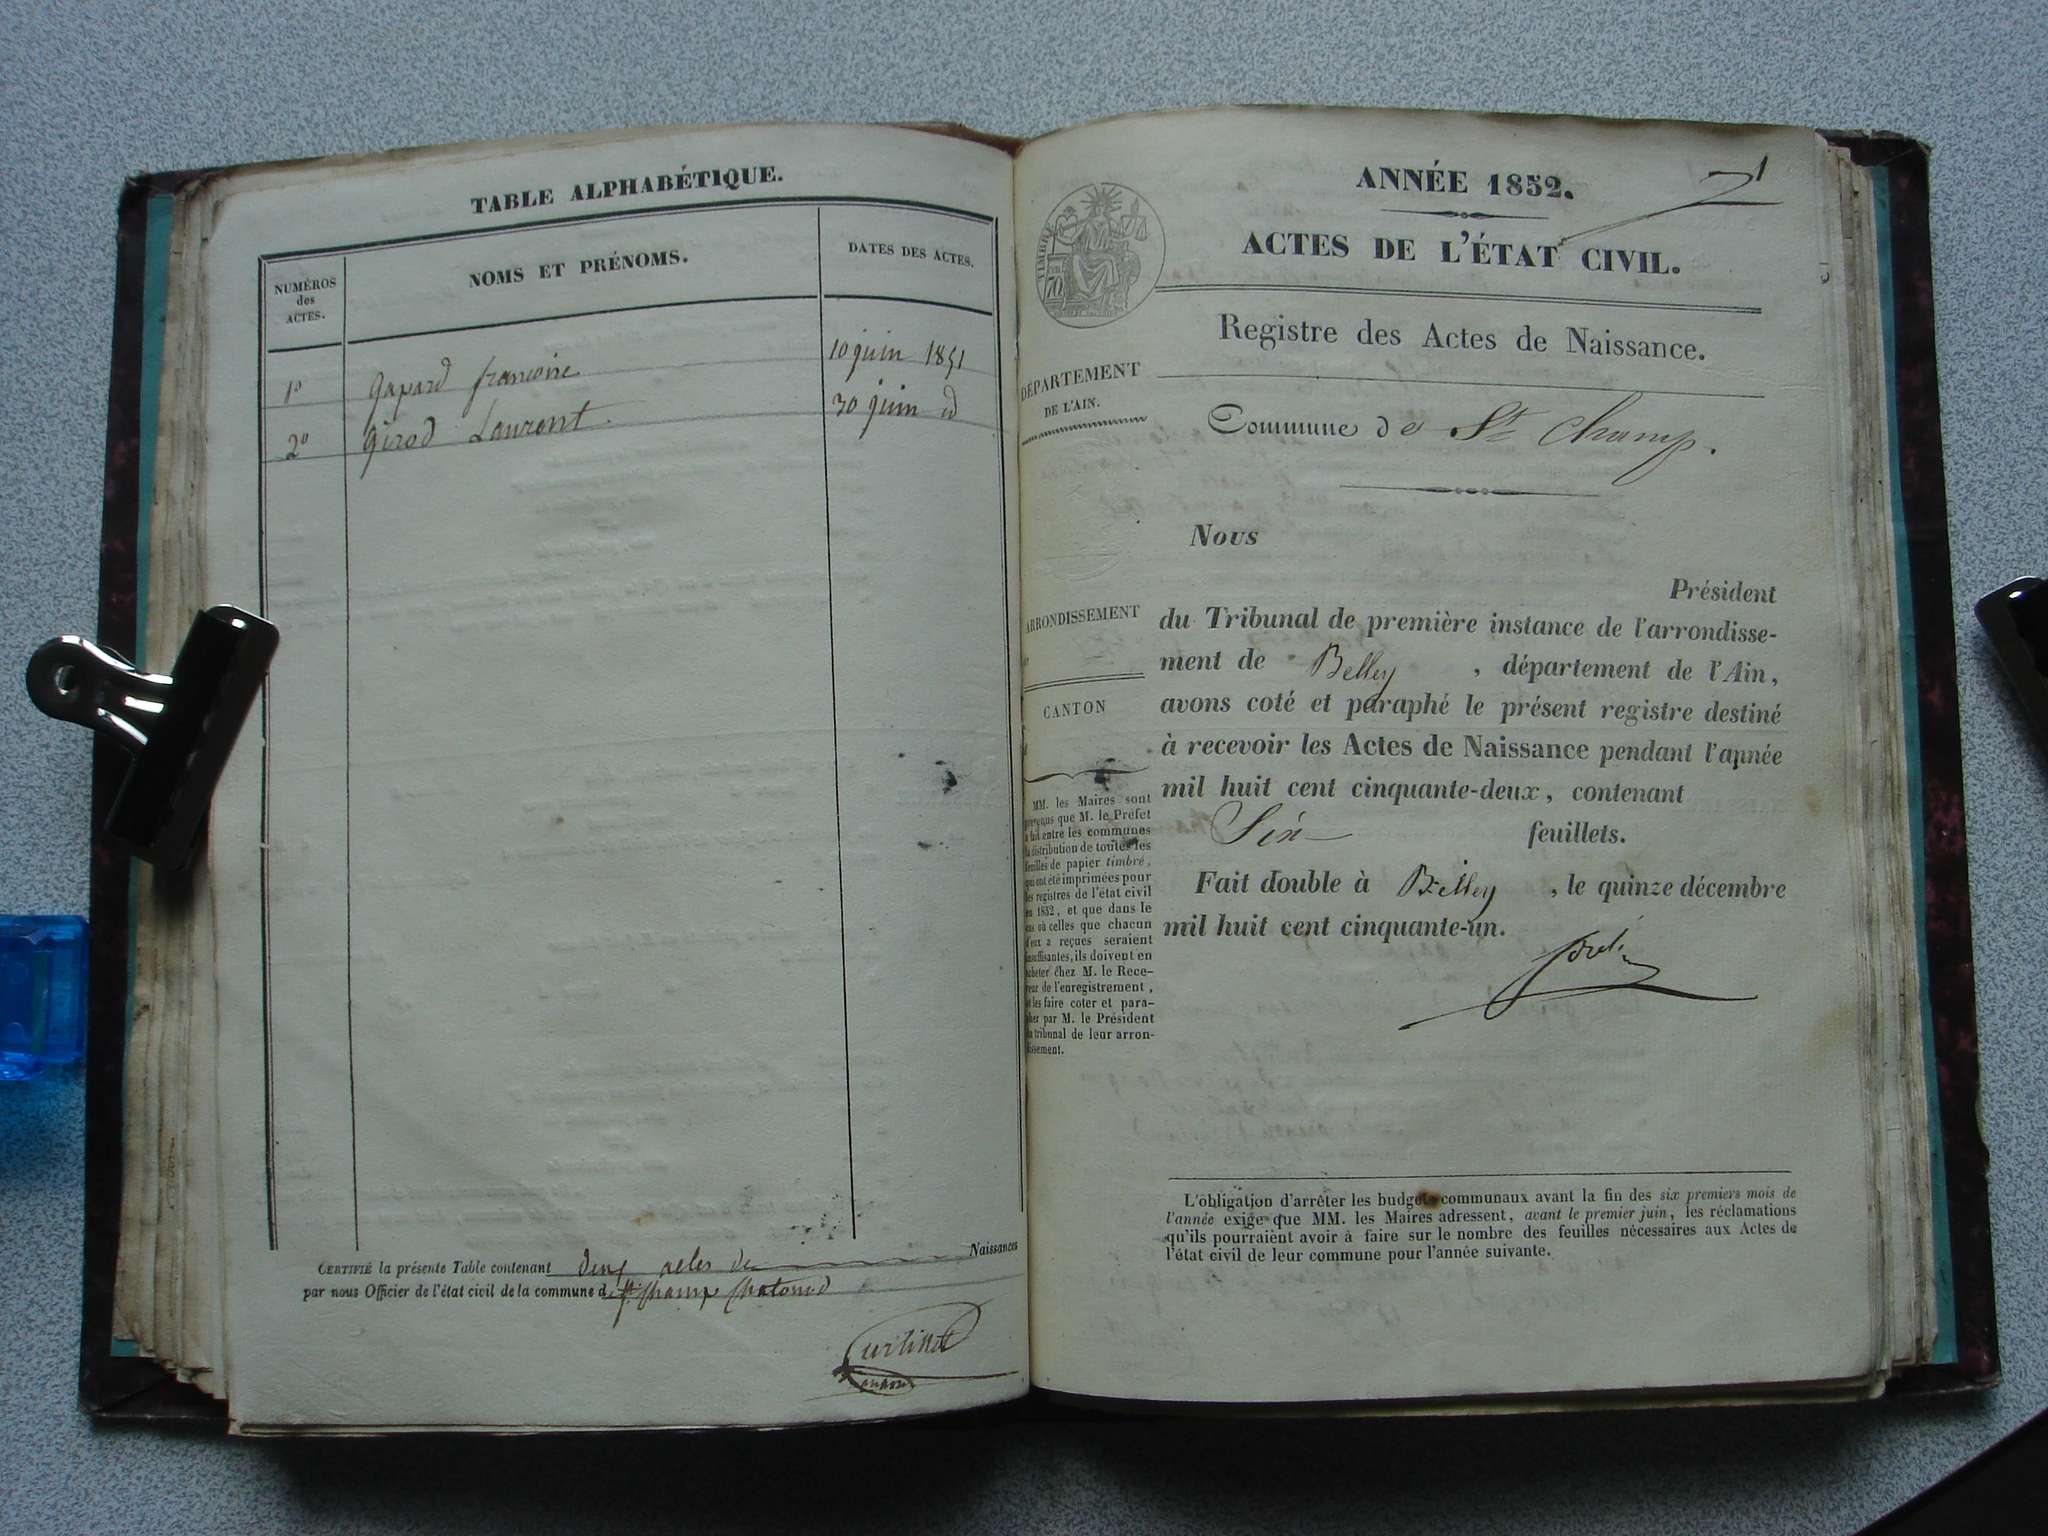 TABLE ALPHABÉTIQUE.
NUMÉROS
des
ACTES.
NOMS ET PRÉNOMS.
DATES DES ACTES.
1º Gapard francoise 10 juin 1851
2º Girod Laurent. 30 juin id
CERTIFIÉ la présente Table contenant deux actes de Naissances
par nous Officier de l'état civil de la commune de St. Champ Chatonod
ANNÉE 1852.
1
ACTES DE L'ÉTAT CIVIL.
TIMBRE
70
Registre des Actes de Naissance.
DÉPARTEMENT
DE L'AIN.
Commune de St Champ.
Nous
Président
du Tribunal de première instance de l'arrondisse-
ment de Belley, département de l'Ain,
avons coté et paraphé le présent registre destiné
à recevoir les Actes de Naissance pendant l'année
mil huit cent cinquante-deux, contenant
Six feuillets.
Fait double à Belley, le quinze décembre
mil huit cent cinquante-un.
ARRONDISSEMENT
CANTON
MM. les Maires sont
prévenus que M. le Préfet
a fait entre les communes
la distribution de toutes les
feuilles de papier timbré,
qui ont été imprimées pour
les registres de l'état civil
en 1852, et que dans le
cas où celles que chacun
d'eux a reçues seraient
insuffisantes, ils doivent en
acheter chez M. le Rece-
veur de l'enregistrement,
et les faire coter et para-
pher par M. le Président
du tribunal de leur arron-
dissement.
L'obligation d'arrêter les budgets communaux avant la fin des six premiers mois de
l'année exige que MM. les Maires adressent, avant le premier juin, les réclamations
qu'ils pourraient avoir à faire sur le nombre des feuilles nécessaires aux Actes de
l'état civil de leur commune pour l'année suivante.